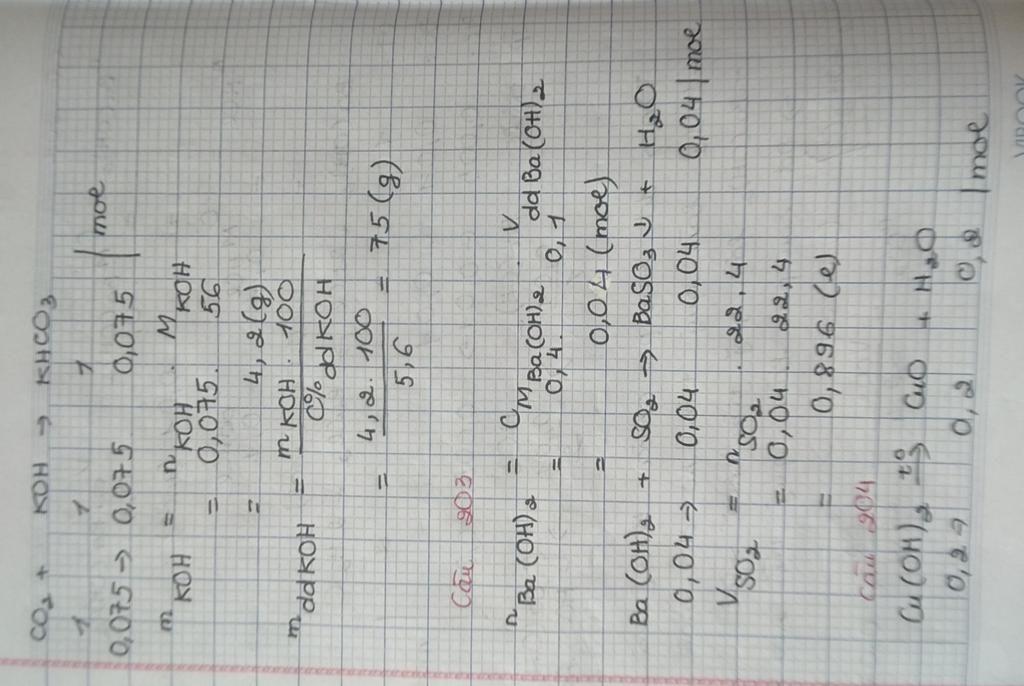 CO2 + KOH → KHCO3
1 1 1
0,075 → 0,075 0,075 | moe
m KOH = n KOH . M KOH
= 0,075 . 56
= 4,2 (g)
m ddKOH = m KOH . 100 / C% ddKOH
= 4,2 . 100 / 5,6 = 75 (g)
Câu 203
n Ba(OH)2 = CM Ba(OH)2 . V dd Ba(OH)2
= 0,4 . 0,1
= 0,04 (moe)
Ba(OH)2 + SO2 → BaSO3 ↓ + H2O
0,04 → 0,04 0,04 0,04 | moe
V SO2 = n SO2 . 22,4
= 0,04 . 22,4
= 0,896 (e)
Câu 204
Cu(OH)2 t° → CuO + H2O
0,2 → 0,2 0,2 | moe
VIBOOK